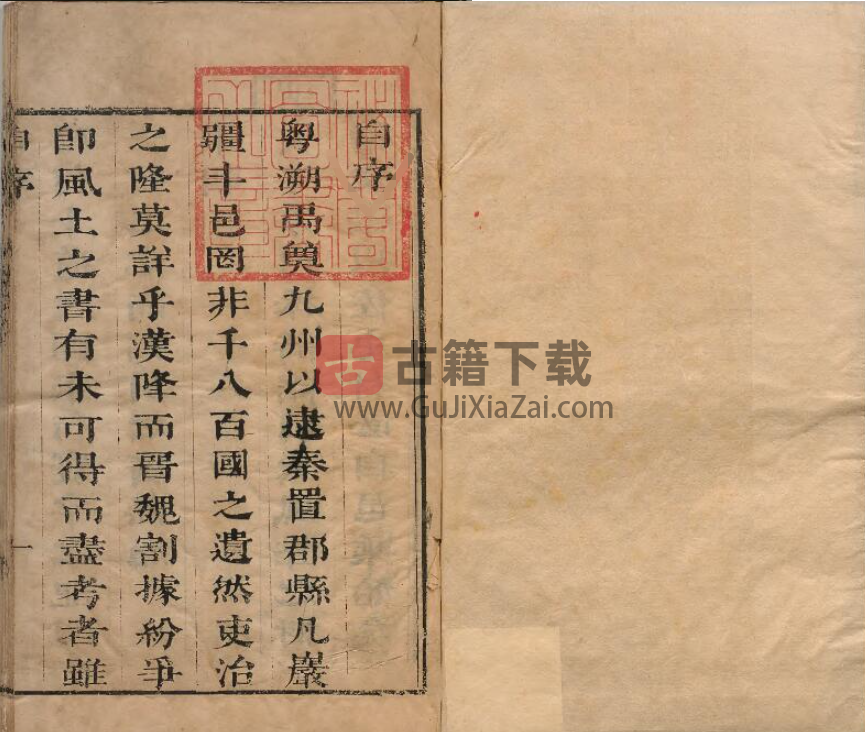 自序
粤溯禹奠九州以逮秦置郡縣凡巖
疆斗邑罔非千八百國之遺然吏治
之隆莫詳乎漢降而晉魏割據紛爭
卽風土之書有未可得而盡考者雖
自序
一
古籍下载
www.GuJiXiaZai.com